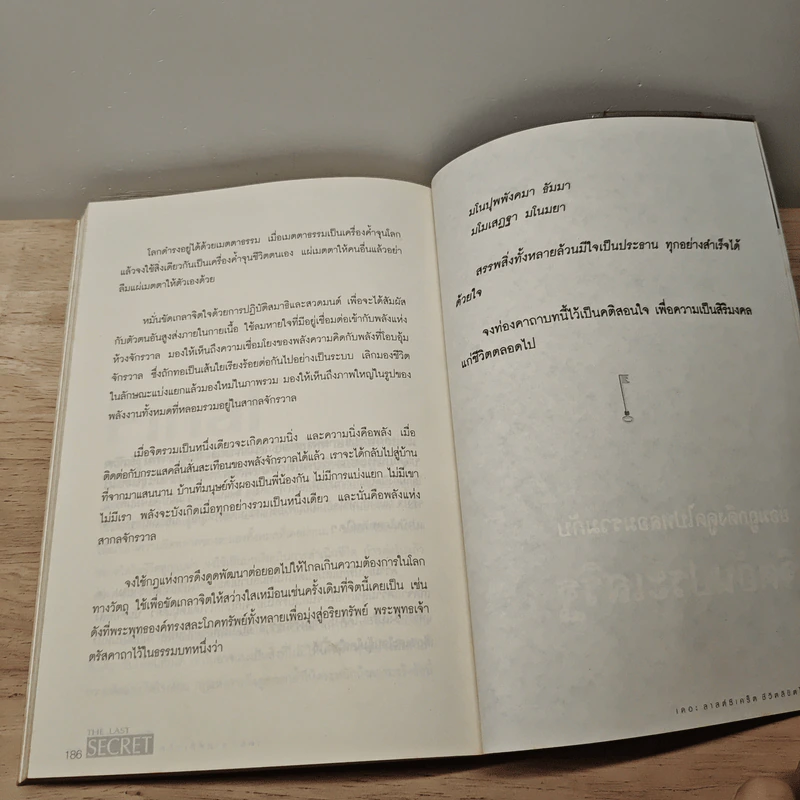 โลกดำรงอยู่ได้ด้วยเมตตาธรรม เมื่อเมตตาธรรมเป็นเครื่องค้ำจุนโลก
แล้วจงใช้สิ่งเดียวกันเป็นเครื่องค้ำจุนชีวิตตนเอง แผ่เมตตาให้คนอื่นแล้วอย่า
ลืมแผ่เมตตาให้ตัวเองด้วย
หมั่นขัดเกลาจิตใจด้วยการปฏิบัติสมาธิและสวดมนต์ เพื่อจะได้สัมผัส
กับตัวตนอันสูงส่งภายในกายเนื้อ ใช้ลมหายใจที่มีอยู่เชื่อมต่อเข้ากับพลังแห่ง
ห้วงจักรวาล มองให้เห็นถึงความเชื่อมโยงของพลังความคิดกับพลังที่โอบอุ้ม
จักรวาล ซึ่งถักทอเป็นเส้นใยเรียงร้อยต่อกันไปอย่างเป็นระบบ เลิกมองชีวิต
ในลักษณะแบ่งแยกแล้วมองใหม่ในภาพรวม มองให้เห็นถึงภาพใหญ่ในรูปของ
พลังงานทั้งหมดที่หลอมรวมอยู่ในสากลจักรวาล
เมื่อจิตรวมเป็นหนึ่งเดียวจะเกิดความนิ่ง และความนิ่งคือพลัง เมื่อ
ติดต่อกับกระแสคลื่นสั่นสะเทือนของพลังจักรวาลได้แล้ว เราจะได้กลับไปสู่บ้าน
ที่จากมาแสนนาน บ้านที่มนุษย์ทั้งผองเป็นพี่น้องกัน ไม่มีการแบ่งแยก ไม่มีเขา
ไม่มีเรา พลังจะบังเกิดเมื่อทุกอย่างรวมเป็นหนึ่งเดียว และนั่นคือพลังแห่ง
สากลจักรวาล
จงใช้กฎแห่งการดึงดูดพัฒนาต่อยอดไปให้ไกลเกินความต้องการในโลก
ทางวัตถุ ใช้เพื่อขัดเกลาจิตให้สว่างใสเหมือนเช่นครั้งเดิมที่จิตนี้เคยเป็น เช่น
ดังที่พระพุทธองค์ทรงสละโภคทรัพย์ทั้งหลายเพื่อมุ่งสู่อริยทรัพย์ พระพุทธเจ้า
ตรัสคาถาไว้ในธรรมบทหนึ่งว่า
186 THE LAST
SECRET
มโนปุพพังคมา ธัมมา
มโมเสฏฐา มโนมยา
สรรพสิ่งทั้งหลายล้วนมีใจเป็นประธาน ทุกอย่างสำเร็จได้
ด้วยใจ
จงท่องคาถาบทนี้ไว้เป็นคติสอนใจ เพื่อความเป็นสิริมงคล
แก่ชีวิตตลอดไป
เดอะ ลาสต์ซีเคร็ต